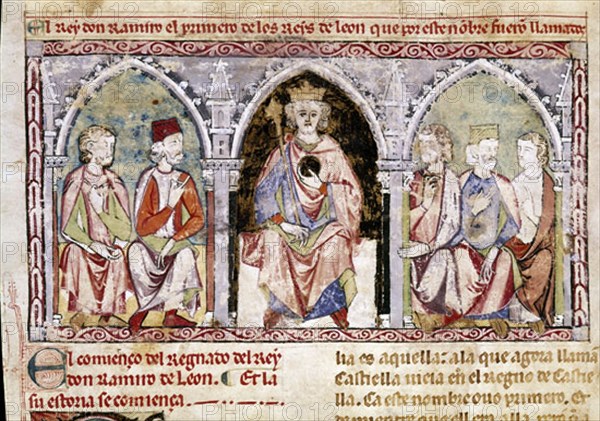 El Rey don Ramiro el primero de los Reys de leon que por este nõbre fuerõ llamados
El comienço del Regnado del Rey
don Ramiro de Leon. Et la
su estoria se comiença
lia es aquella: a la que agora llama
Castiella uieia eñ el Regno de Caste
lla. Ca este nombre ouo primero. Et